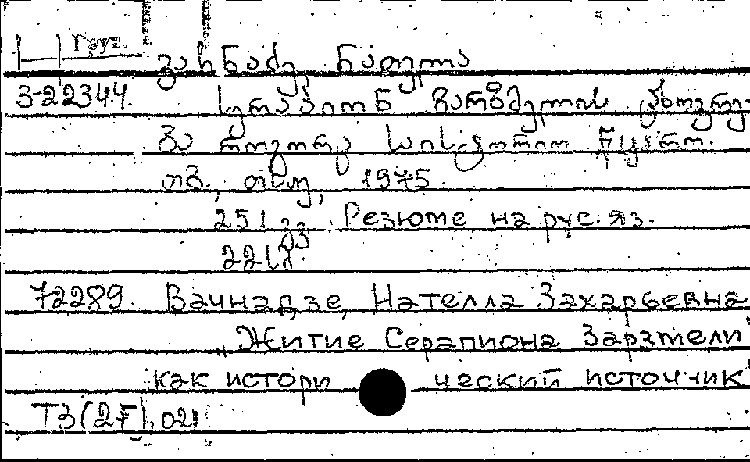 Груз.
ვაჩნაძე ნათელა
3-22344. სერაპიონ ზარზმელის ცხოვრე-
ბა როგორც საისტორიო წყარო.
თბ., თსუ, 1975.
251 გვ. Резюме на рус. яз.
72289. Вачнадзе, Нателла Захарьевна
„Житие Серапиона Зарзмели"
как истори ческий источник"
Т3(2Г),021